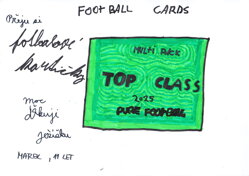 FOOTBALL CARDS
Přeju si
fotbalové
kartičky
MULTI PACK
TOP CLASS
2025
PURE FOOTBALL
moc
děkuji
ježíšku
MAREK, 11 LET